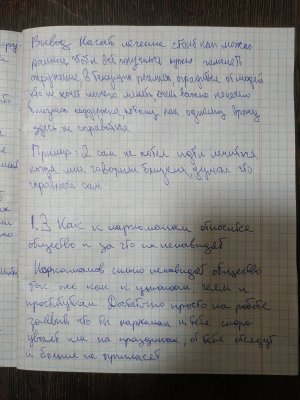 Вывод: Начать лечение стоит как можно
раньше, чтобы всё получилось нужно поменять
окружение, в текущих реалиях оградиться от людей
кто не хочет ничего менять очень важно понимание
близких поддержка, потому как одному врачу
здесь не справиться
Пример: Я сам не хотел идти лечиться
когда мне говорили близкие, думал что
справлюсь сам
1.3 Как к наркоманам относится
общество и за что их ненавидят
Наркоманов сильно ненавидит общество
так же как к геям и
проституткам Достаточно просто на работе
заявить что ты наркоман и тебя скоро
уволят или на праздниках, от тебя отсядут
и больше не пригласят